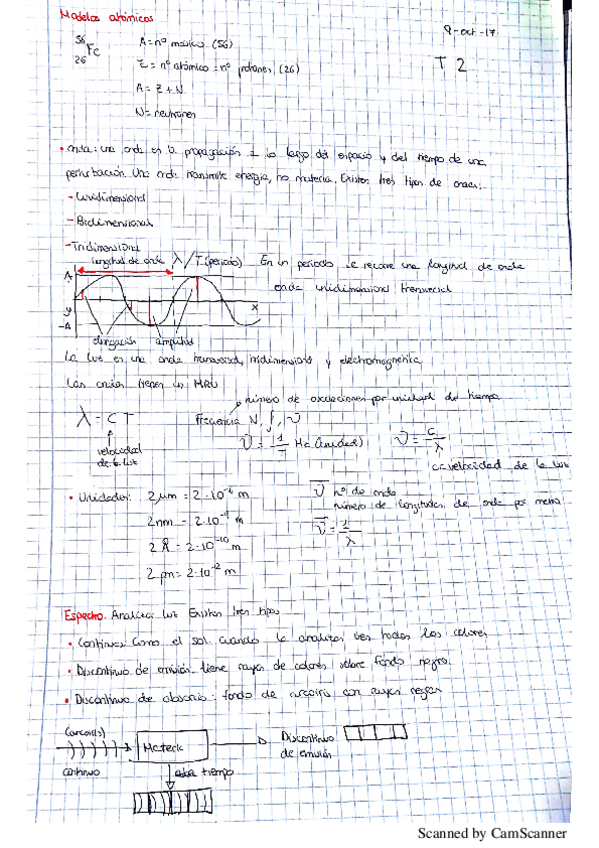 Modelos atómicos
9-oct-17
T 2
56
Fe
26
A = nº másico (56)
Z = nº atómico = nº protones (26)
A = Z + N
N = neutrones
• Onda: una onda es la propagación a lo largo del espacio y del tiempo de una
perturbación. Una onda transmite energía, no materia. Existen tres tipos de ondas:
- Unidimensional
- Bidimensional
- Tridimensional
longitud de onda λ / T (periodo) En un periodo se recorre una longitud de onda
onda unidimensional transversal
A
y
-A
x
elongación amplitud
La luz es una onda transversal, tridimensional y electromagnética.
Las ondas tienen un MRU
número de oscilaciones por unidad de tiempo
λ = C T
Frecuencia N, f, ν
velocidad
de la luz
ν = 1/T Hz (unidad)
ν = c/λ
c = velocidad de la luz
• Unidades: 2 μm = 2·10⁻⁶ m
2 nm = 2·10⁻⁹ m
2 Å = 2·10⁻¹⁰ m
2 pm = 2·10⁻¹² m
ν̅ nº de onda
número de longitudes de onda por metro
ν̅ = 1/λ
Espectro. Analizar luz. Existen tres tipos
• Continuo: Como el sol cuando lo analizas ves todos los colores
• Discontinuo de emisión: tiene rayas de colores sobre fondo negro.
• Discontinuo de absorció: fondo de arcoiris con rayas negas
(arcoiris)
continuo
Materia
Discontinuo
de emisión
tiempo
Scanned by CamScanner